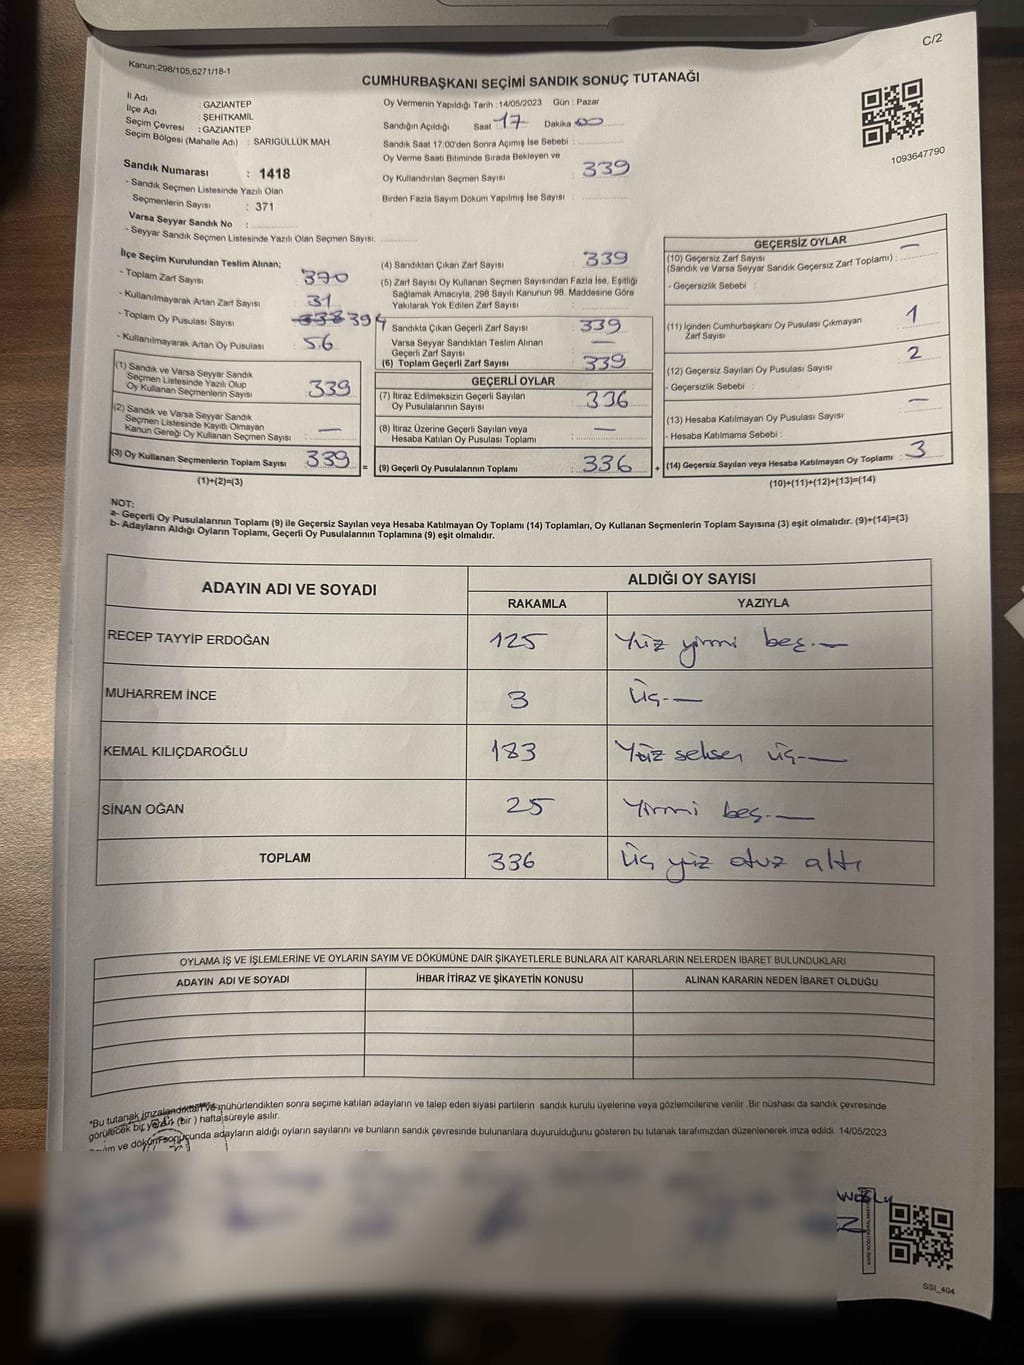 C/2
Kanun:298/105;6271/18-1
CUMHURBAŞKANI SEÇİMİ SANDIK SONUÇ TUTANAĞI
İl Adı : GAZİANTEP
İlçe Adı : ŞEHİTKAMİL
Seçim Çevresi : GAZİANTEP
Seçim Bölgesi (Mahalle Adı) : SARIGÜLLÜK MAH.
Sandık Numarası : 1418
- Sandık Seçmen Listesinde Yazılı Olan
Seçmenlerin Sayısı : 371
Varsa Seyyar Sandık No :
- Seyyar Sandık Seçmen Listesinde Yazılı Olan Seçmen Sayısı:
Oy Vermenin Yapıldığı Tarih : 14/05/2023 Gün : Pazar
Sandığın Açıldığı Saat 17 Dakika 00
Sandık Saat 17:00'den Sonra Açımış İse Sebebi :
Oy Verme Saati Bitiminde Sırada Bekleyen ve
Oy Kullandırılan Seçmen Sayısı : 339
Birden Fazla Sayım Döküm Yapılmış İse Sayısı :
1093647790
İlçe Seçim Kurulundan Teslim Alınan;
- Toplam Zarf Sayısı : 370
- Kullanılmayarak Artan Zarf Sayısı : 31
- Toplam Oy Pusulası Sayısı : 338 394
- Kullanılmayarak Artan Oy Pusulası : 56
(1) Sandık ve Varsa Seyyar Sandık
Seçmen Listesinde Yazılı Olup
Oy Kullanan Seçmenlerin Sayısı : 339
(2) Sandık ve Varsa Seyyar Sandık
Seçmen Listesinde Kayıtlı Olmayan
Kanun Gereği Oy Kullanan Seçmen Sayısı : —
(3) Oy Kullanan Seçmenlerin Toplam Sayısı : 339
(1)+(2)=(3)
=
(4) Sandıktan Çıkan Zarf Sayısı : 339
(5) Zarf Sayısı Oy Kullanan Seçmen Sayısından Fazla İse, Eşitliği
Sağlamak Amacıyla, 298 Sayılı Kanunun 98. Maddesine Göre
Yakılarak Yok Edilen Zarf Sayısı :
Sandıkta Çıkan Geçerli Zarf Sayısı : 339
Varsa Seyyar Sandıktan Teslim Alınan
Geçerli Zarf Sayısı : —
(6) Toplam Geçerli Zarf Sayısı : 339
GEÇERLİ OYLAR
(7) İtiraz Edilmeksizin Geçerli Sayılan
Oy Pusulalarının Sayısı : 336
(8) İtiraz Üzerine Geçerli Sayılan veya
Hesaba Katılan Oy Pusulası Toplamı : —
(9) Geçerli Oy Pusulalarının Toplamı : 336
+
GEÇERSİZ OYLAR
(10) Geçersiz Zarf Sayısı
(Sandık ve Varsa Seyyar Sandık Geçersiz Zarf Toplamı) : —
- Geçersizlik Sebebi :
(11) İçinden Cumhurbaşkanı Oy Pusulası Çıkmayan
Zarf Sayısı : 1
(12) Geçersiz Sayılan Oy Pusulası Sayısı : 2
- Geçersizlik Sebebi :
(13) Hesaba Katılmayan Oy Pusulası Sayısı : —
- Hesaba Katılmama Sebebi :
(14) Geçersiz Sayılan veya Hesaba Katılmayan Oy Toplamı : 3
(10)+(11)+(12)+(13)=(14)
NOT:
a- Geçerli Oy Pusulalarının Toplamı (9) ile Geçersiz Sayılan veya Hesaba Katılmayan Oy Toplamı (14) Toplamları, Oy Kullanan Seçmenlerin Toplam Sayısına (3) eşit olmalıdır. (9)+(14)=(3)
b- Adayların Aldığı Oyların Toplamı, Geçerli Oy Pusulalarının Toplamına (9) eşit olmalıdır.
ADAYIN ADI VE SOYADI ALDIĞI OY SAYISI
RAKAMLA YAZIYLA
RECEP TAYYİP ERDOĞAN 125 Yüz yirmi beş.—
MUHARREM İNCE 3 Üç.—
KEMAL KILIÇDAROĞLU 183 Yüz seksen üç.—
SİNAN OĞAN 25 Yirmi beş.—
TOPLAM 336 Üç yüz otuz altı
OYLAMA İŞ VE İŞLEMLERİNE VE OYLARIN SAYIM VE DÖKÜMÜNE DAİR ŞİKAYETLERLE BUNLARA AİT KARARLARIN NELERDEN İBARET BULUNDUKLARI
ADAYIN ADI VE SOYADI İHBAR İTİRAZ VE ŞİKAYETİN KONUSU ALINAN KARARIN NEDEN İBARET OLDUĞU
"Bu tutanak imzalandıktan ve mühürlendikten sonra seçime katılan adayların ve talep eden siyasi partilerin sandık kurulu üyelerine veya gözlemcilerine verilir. Bir nüshası da sandık çevresinde
görülecek bir yazan (bir ) hafta süreyle asılır.
ve döküm sonucunda adayların aldığı oyların sayılarını ve bunların sandık çevresinde bulunanlara duyurulduğunu gösteren bu tutanak tarafımızdan düzenlenerek imza edildi. 14/05/2023
SSI_404